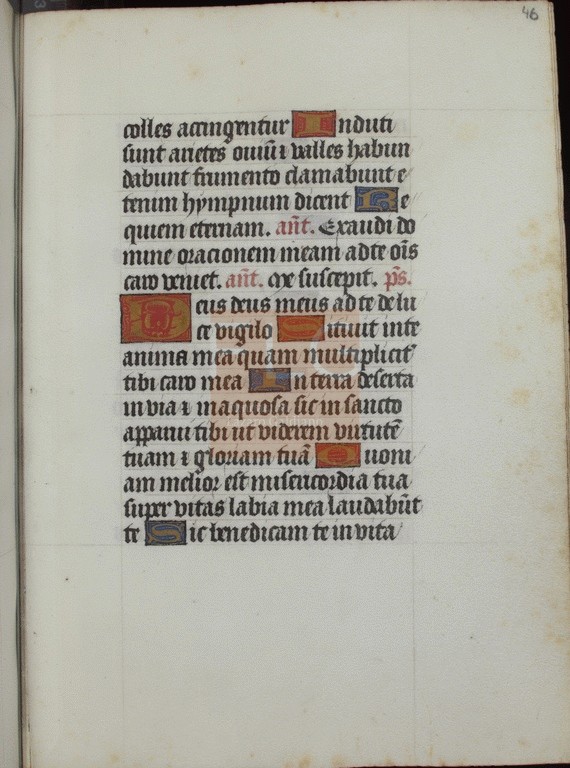 46
colles accingentur Induti
sunt arietes ouiũ ⁊ valles habun
dabunt frumento clamabunt e
tenim hympnum dicent Re
quiem eternam. añt. Exaudi do
mine oracionem meam ad te oīs
caro veniet. añt. Me suscepit. p̄s.
Deus deus meus ad te de lu
ce vigilo Sitiuit in te
anima mea quam multiplicit᷑
tibi caro mea In terra deserta
in via ⁊ in aquosa sic in sancto
apparui tibi ut viderem virtutẽ
tuam ⁊ gloriam tuã Quoni
am melior est misericordia tua
super vitas labia mea laudabũt
te Sic benedicam te in vita